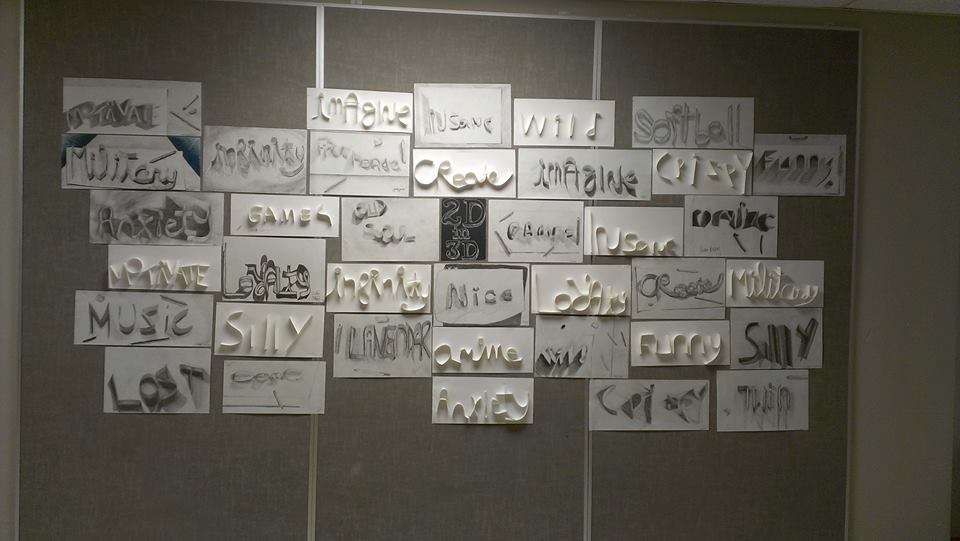 PRIVATE
imAgine
INSANE
Wild
Softball
Military
infinity
CReate
imAgine
CRISPY
Funny
Anxiety
GAMES
2D
in
3D
INSane
PRIVATE
LOYALTY
infinity
Nice
Loyalty
CReate
Military
MUSIC
SILLY
LAVENDER
anime
Wild
Funny
SILLY
LOST
Anxiety
CRISPY